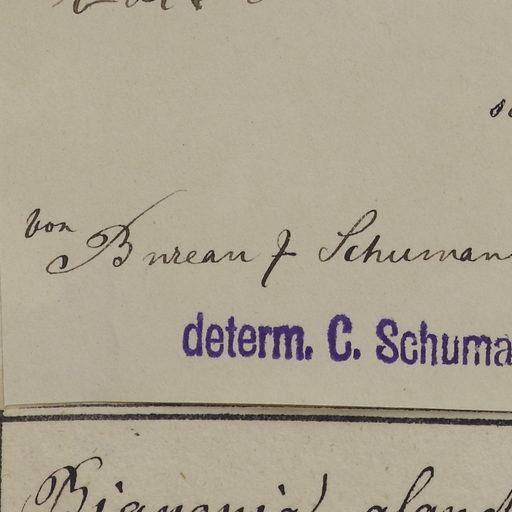 von Bureau & Schuman
determ. C. Schuma
Bignonia gland